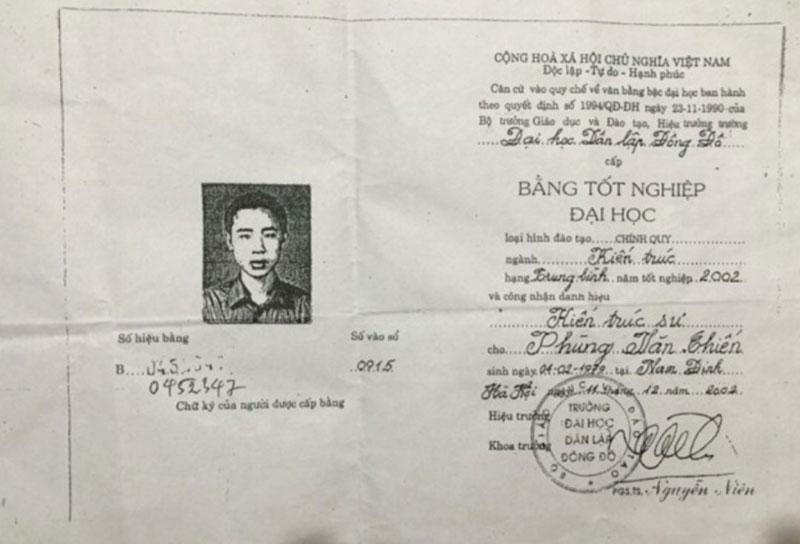 CỘNG HOÀ XÃ HỘI CHỦ NGHĨA VIỆT NAM
Độc lập - Tự do - Hạnh phúc
Căn cứ vào quy chế về văn bằng bậc đại học ban hành
theo quyết định số 1994/QĐ-ĐH ngày 23-11-1990 của
Bộ trưởng Giáo dục và Đào tạo, Hiệu trưởng trường
Đại học Dân lập Đông Đô
cấp
BẰNG TỐT NGHIỆP
ĐẠI HỌC
loại hình đào tạo CHÍNH QUY
ngành Kiến trúc
hạng Trung bình năm tốt nghiệp 2002
và công nhận danh hiệu
Kiến trúc sư
cho Phùng Văn Chiến
sinh ngày 01-02-1979 tại Nam Định
Hà Nội ngày 11 tháng 12 năm 2002
Hiệu trưởng
Khoa trưởng
TRƯỜNG
ĐẠI HỌC
DÂN LẬP
ĐÔNG ĐÔ
PGS.TS. Nguyễn Niên
Số hiệu bằng
Số vào sổ
B
0915
0452347
Chữ ký của người được cấp bằng